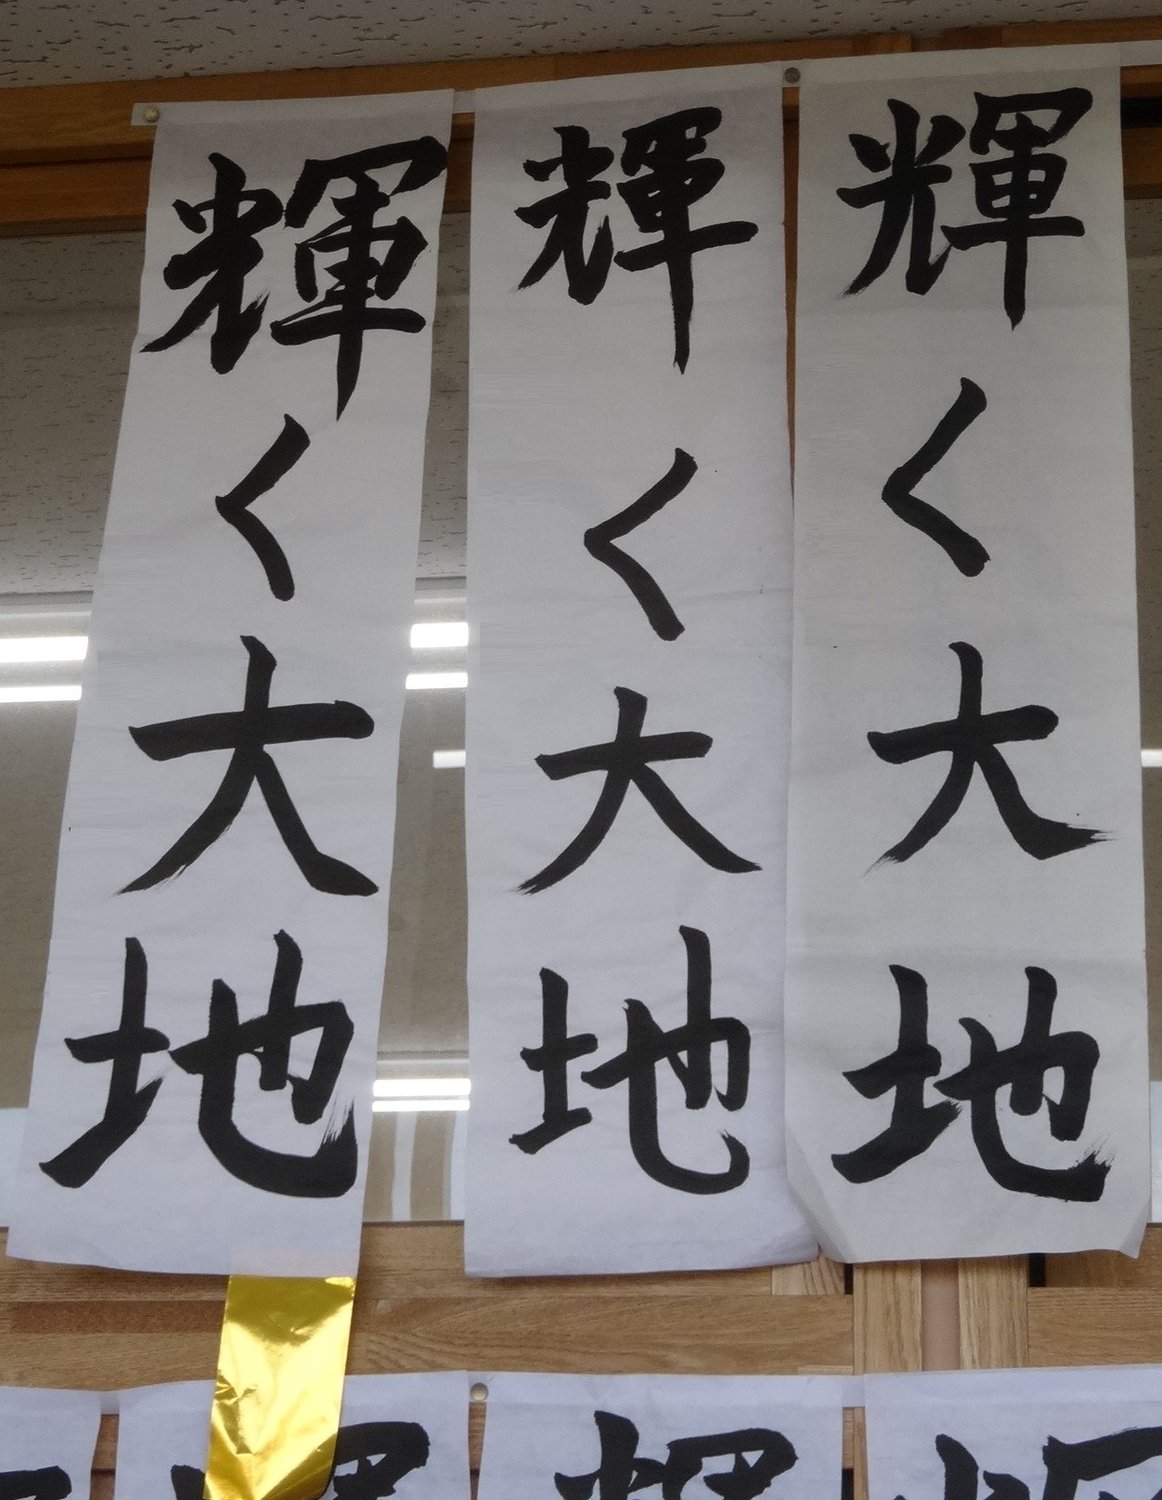 輝く大地
輝く大地
輝く大地